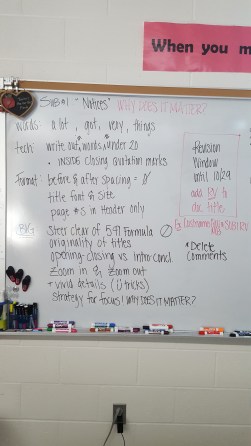 When you m
SWB#1 "Notices" WHY DOES IT MATTER?
words: a lot, got, very, things
tech: write out #words # under 20
• INSIDE closing quotation marks
Format: before & after spacing = 0
title font & size
page #s in Header only
Steer clear of 5-¶ Formula
originality of titles
opening-closing vs intro-concl.
Zoom in & Zoom out
+ vivid details (ü tricks)
strategy for focus! WHY DOES IT MATTER?
Revision
Window
until 10/29
add RV to
doc title.
*Delete
Comments